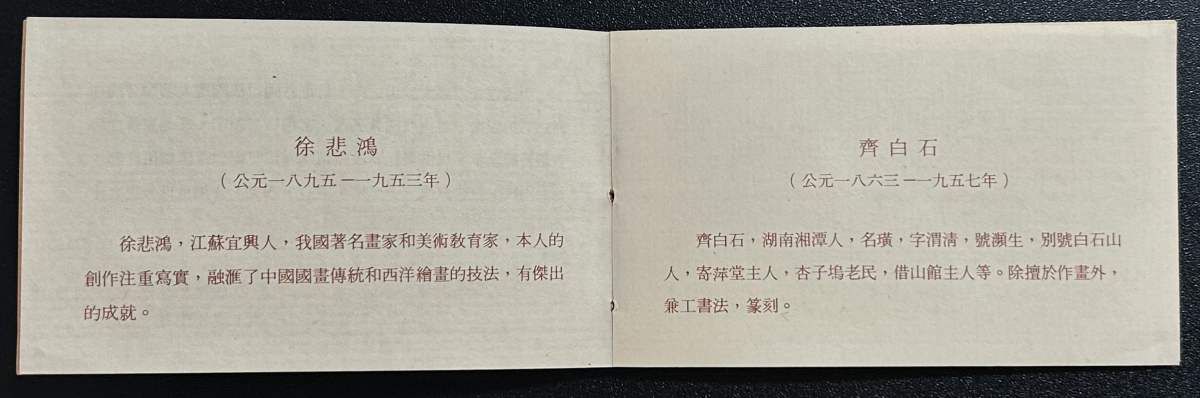 徐悲鴻
（公元一八九五－一九五三年）
徐悲鴻，江蘇宜興人，我國著名畫家和美術教育家，本人的
創作注重寫實，融滙了中國國畫傳統和西洋繪畫的技法，有傑出
的成就。
齊白石
（公元一八六三－一九五七年）
齊白石，湖南湘潭人，名璜，字渭淸，號瀕生，別號白石山
人，寄萍堂主人，杏子塢老民，借山館主人等。除擅於作畫外，
兼工書法，篆刻。